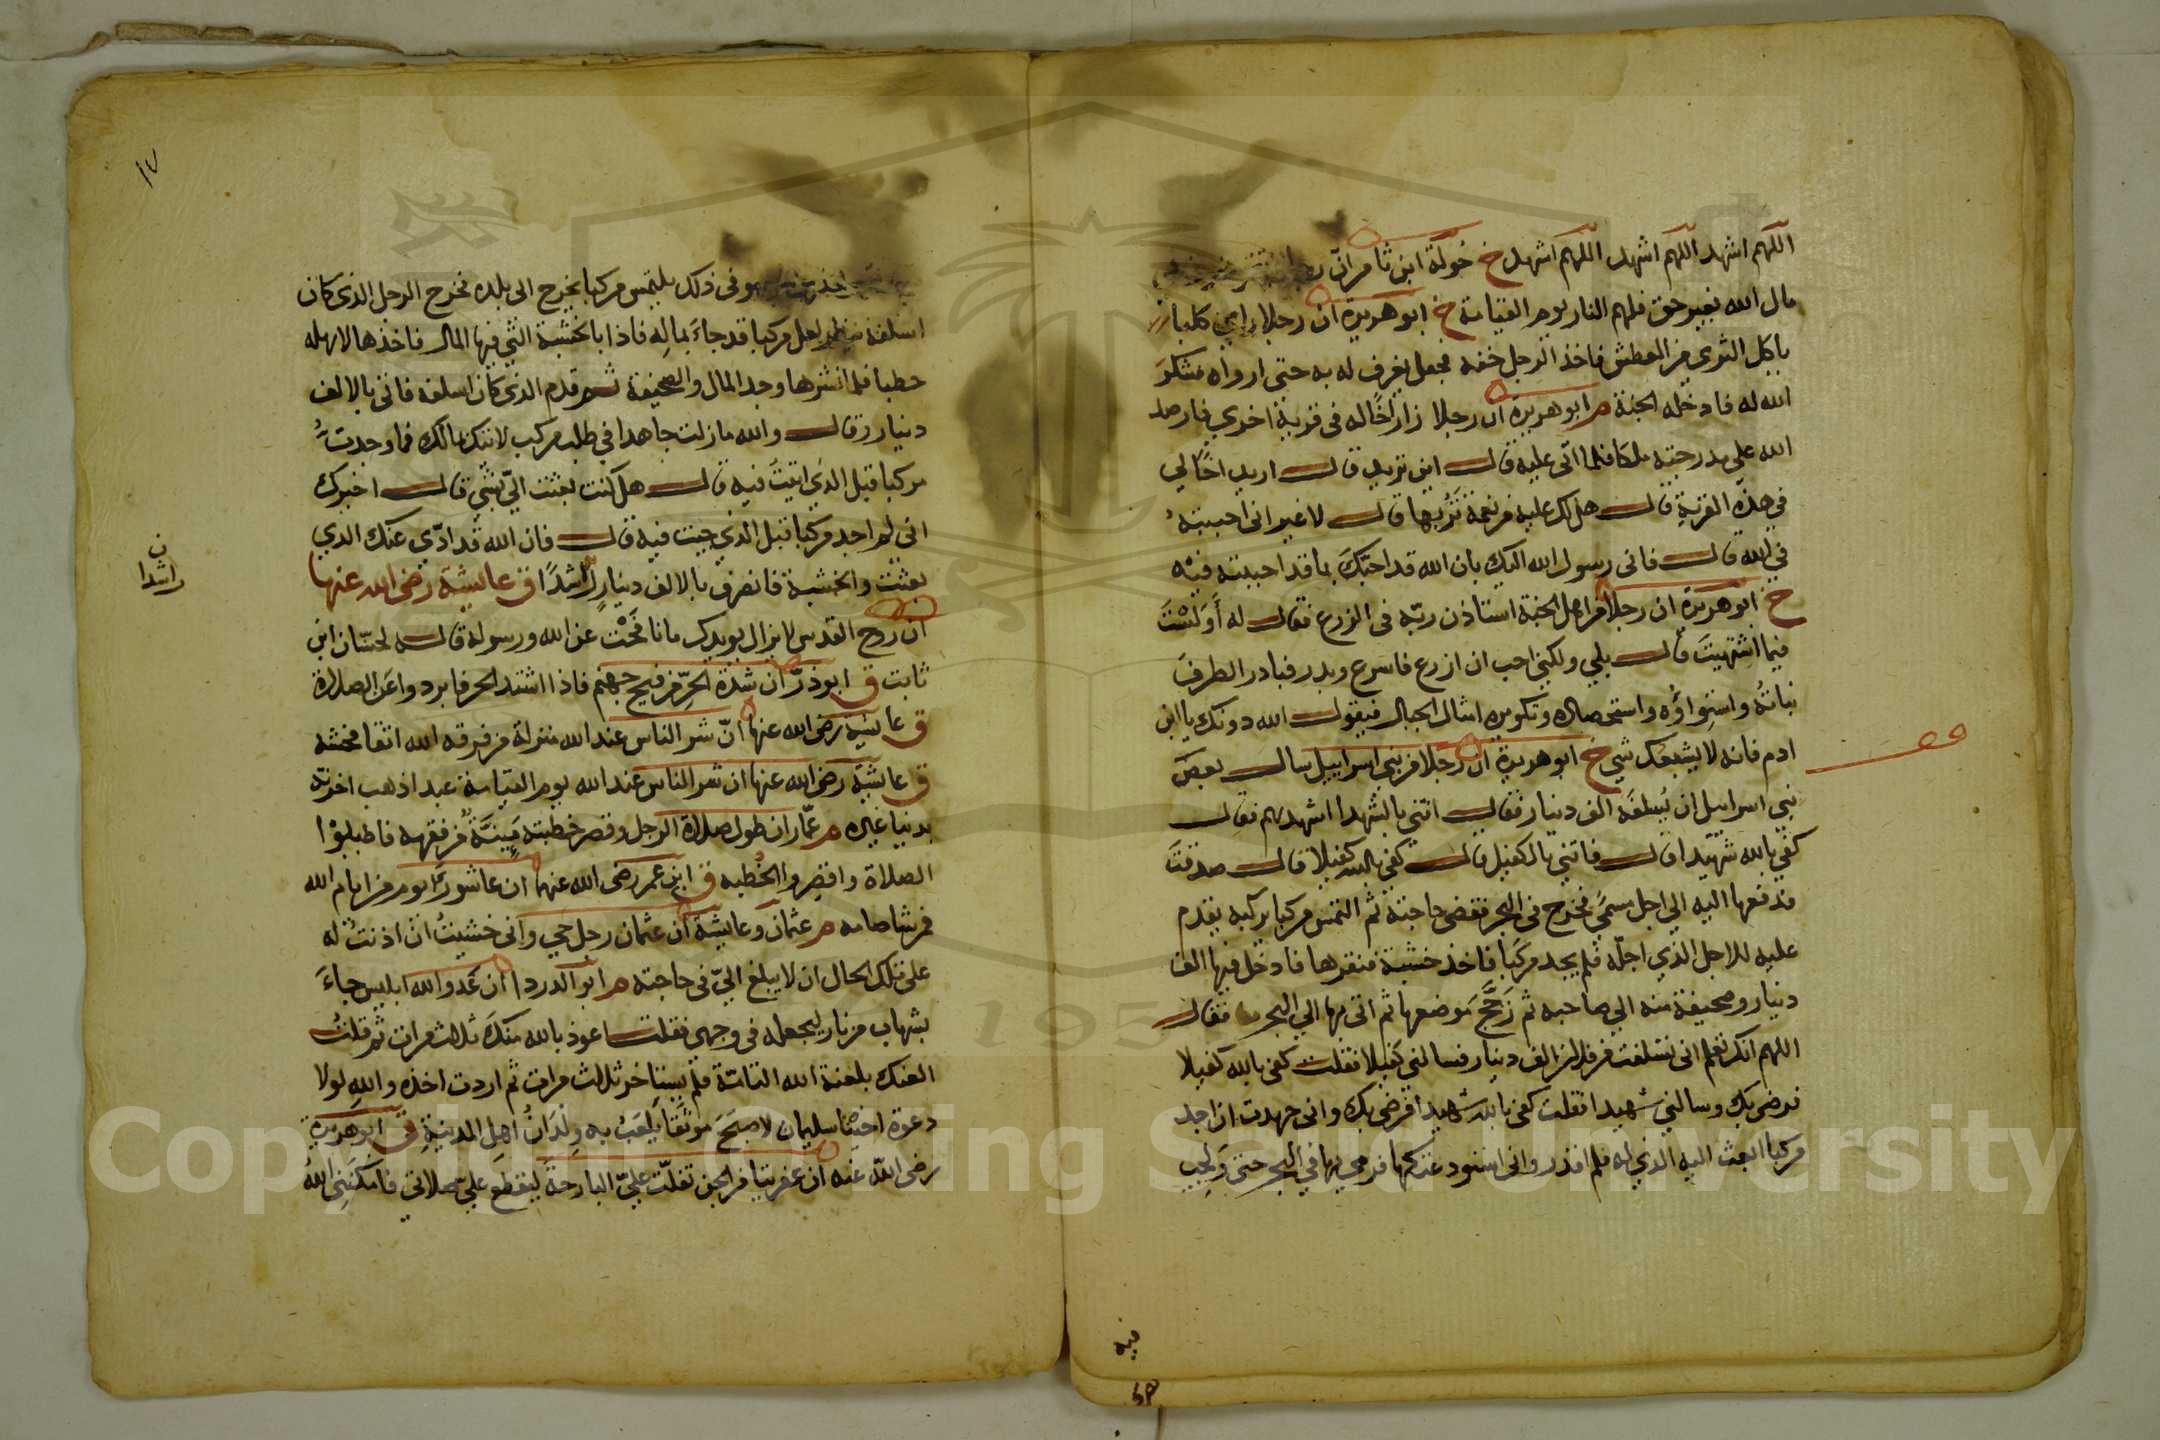 اللهم اشهد اللهم اشهد اللهم اشهد خ خولة ابن ثامر ان
مال الله بغير حق فلهم النار يوم القيامة خ ابو هريرة ان رجلا راي كلبا
ياكل الثري من العطش فاخذ الرجل خفه فجعل يغرف له به حتى ارواه فشكر
الله له فادخله الجنة م ابو هريرة ان رجلا زار اخًا له فى قرية اخري فارصد
الله علي مدرجته ملكا فلما اتى عليه قال اين تريد قال اريد اخًا لي
في هذه القرية قال هل لك عليه من نعمة تربها قال لا غير انى احببته
في الله قال فانى رسول الله اليك بان الله قد احبك كما قد احببته فيه
خ ابو هريرة ان رجلا من اهل الجنة استاذن ربه فى الزرع فقال له أولست
فيما اشتهيت قال بلي ولكني احب ان ازرع فاسرع وبدر فبادر الطرف
نباته واستواؤه واستحصاده وتكويره امثال الجبال فيقول الله دونك يا ابن
ادم فانه لا يشبعك شي خ ابو هريرة ان رجلا من بني اسراييل سال بعض
بني اسراييل ان يسلفه الف دينار فقال ائتني بالشهدا اشهدهم فقال
كفي بالله شهيدا قال فاتني بالكفيل قال كفي بالله كفيلا قال صدقت
فدفعها اليه الي اجل مسمي فخرج فى البحر فقضى حاجته ثم التمس مركبا يركبه يقدم
عليه للاجل الذي اجله فلم يجد مركبا فاخذ خشبة فنقرها فادخل فيها الف
دينار وصحيفة منه الي صاحبه ثم زجج موضعها ثم اتى بها الي البحر فقال
اللهم انك تعلم انى تسلفت من فلان الف دينار فسالني كفيلا فقلت كفى بالله كفيلا
فرضى بك وسالني شهيدا فقلت كفى بالله شهيدا فرضى بك وانى جهدت ان اجد
مركبا ابعث اليه الذي له فلم اقدر وانى استودعتكها فرمي بها في البحر حتى ولجت
فيه
وهو فى ذلك يلتمس مركبا يخرج الى بلده فخرج الرجل الذى كان
اسلفه ينظر لعل مركبا قد جاء بماله فاذا بالخشبة التي فيها المال فاخذها لاهله
حطبا فلما نشرها وجد المال والصحيفة ثم قدم الذى كان اسلفه فاتى بالالف
دينار فقال والله ما زلت جاهدا في طلب مركب لاتيك بمالك فما وجدت
مركبا قبل الذي اتيت فيه قال هل كنت بعثت الي بشي قال اخبرك
انى لم اجد مركبا قبل الذي جيت فيه قال فان الله قد ادّي عنك الذي
بعثت والخشبة فانصرف بالالف دينار راشدًا ق عايشة رضى الله عنها
ان روح القدس لا يزال يويدك ما نافحت عن الله ورسوله قاله لحسّان ابن
ثابت ق ابو ذرّ ان شدة الحرّ من فيح جهنم فاذا اشتد الحر فابردوا عن الصلاة
ق عايشة رضى الله عنها انّ شر الناس عند الله منزلة من فرقه الله اتقا فحشه
ق عايشة رضى الله عنها ان شر الناس عند الله يوم القيامة عبد اذهب اخرته
بدنيا غيره م عمّار ان طول صلاة الرجل وقصر خطبته مَيِنَّة من فقهه فاطيلوا
الصلاة واقصروا الخطبه ق ابن عمر رضى الله عنهما ان عاشورا يوم من ايام الله
فمن شا صامه م عثمان وعايشة ان عثمان رجل حيي وانى خشيت ان اذنت له
على تلك الحال ان لا يبلغ اليّ فى حاجته م ابو الدردا ان عدو الله ابليس جاءَ
بشهاب من نار ليجعله فى وجهى فقلت اعوذ بالله منك ثلاث مرات ثم قلت
العنك بلعنة الله التامّة فلم يستاخر ثلاث مرات ثم اردت اخذه والله لولا
دعوة اخينا سليمان لاصبح موثقا يلعب به ولدان اهل المدينة ق ابو هريرة
رضى الله عنه ان عفريتا من الجن تفلّت عليّ البارحة ليقطع علي صلاتي فامكنني الله
ن
راشدا
١٧